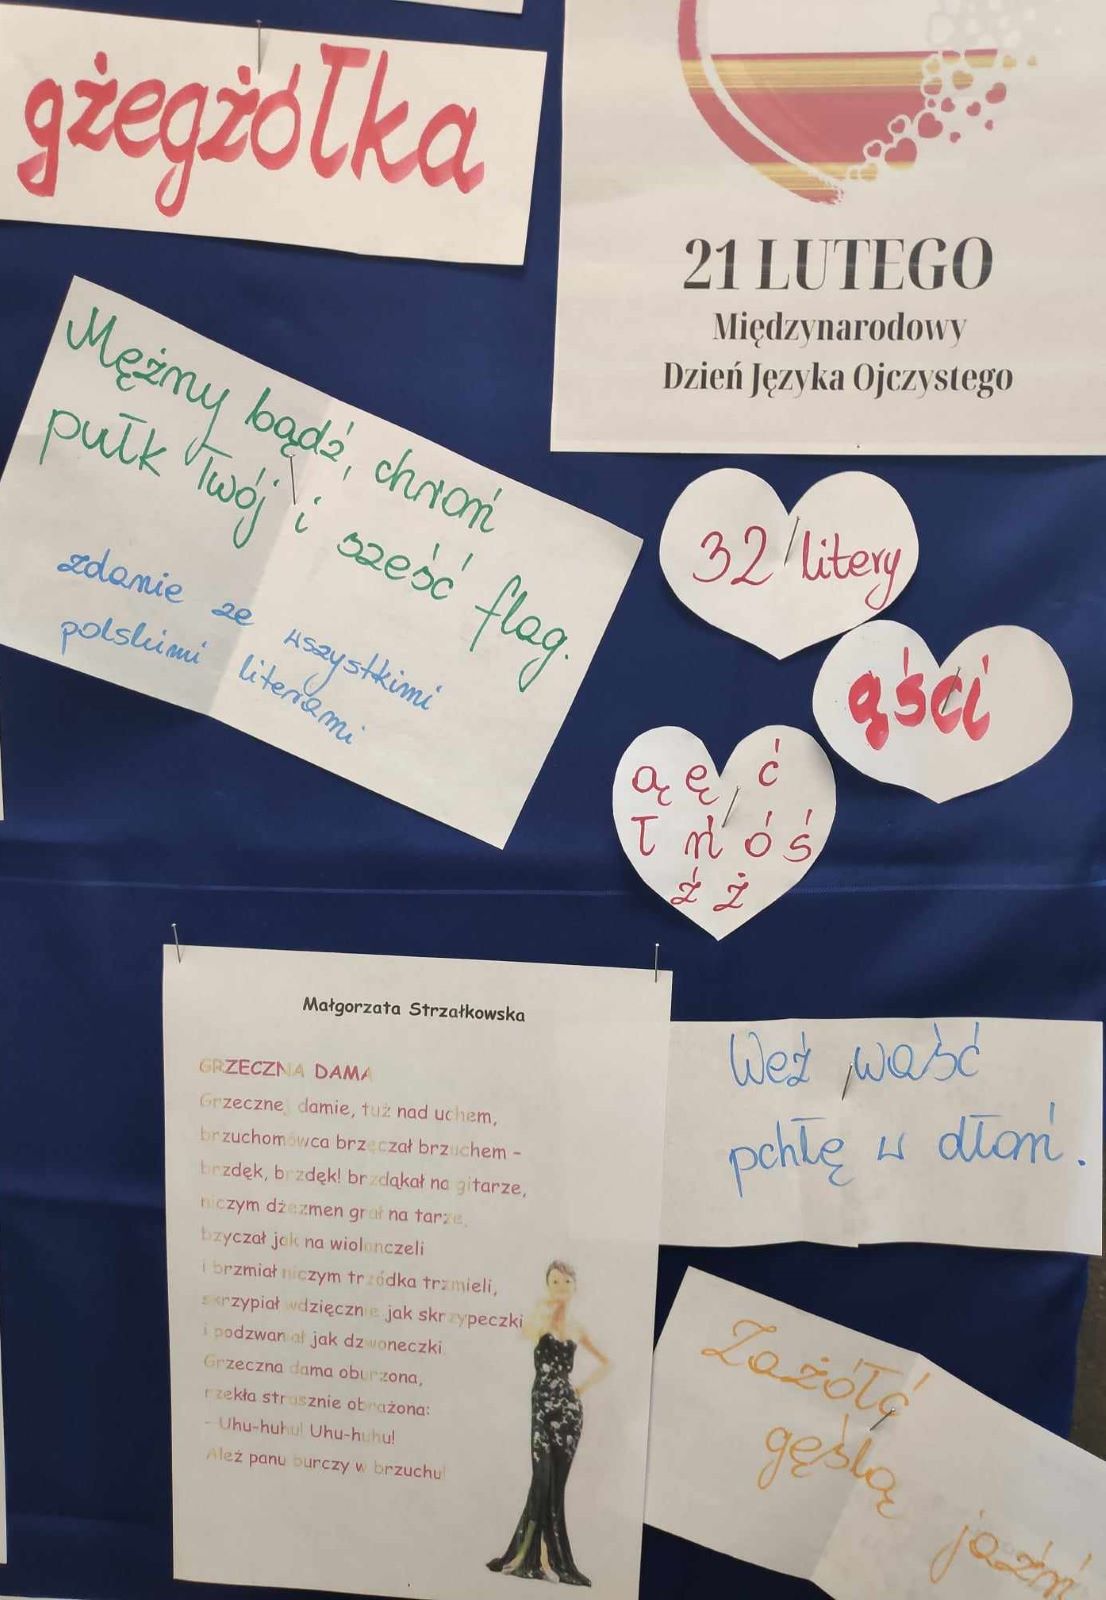 gżegżółka
21 LUTEGO
Międzynarodowy
Dzień Języka Ojczystego
Mężny bądź, chroń
pułk Twój i sześć flag.
zdanie ze wszystkimi
polskimi literami
32 litery
gści
ą ę ć
ł ń ó ś
ź ż
Małgorzata Strzałkowska
GRZECZNA DAMA
Grzecznej damie, tuż nad uchem,
brzuchomówca brzęczał brzuchem -
brzdęk, brzdęk! brzdąkał na gitarze,
niczym dżezmen grał na tarze,
bzyczał jak na wiolonczeli
i brzmiał niczym trzódka trzmieli,
skrzypiał wdzięcznie jak skrzypeczki
i podzwaniał jak dzwoneczki.
Grzeczna dama oburzona,
rzekła strasznie obrażona:
- Uhu-huhu! Uhu-huhu!
Ależ panu burczy w brzuchu!
Weź waść
pchłę w dłoń.
Zażółć
gęślą
jaźń